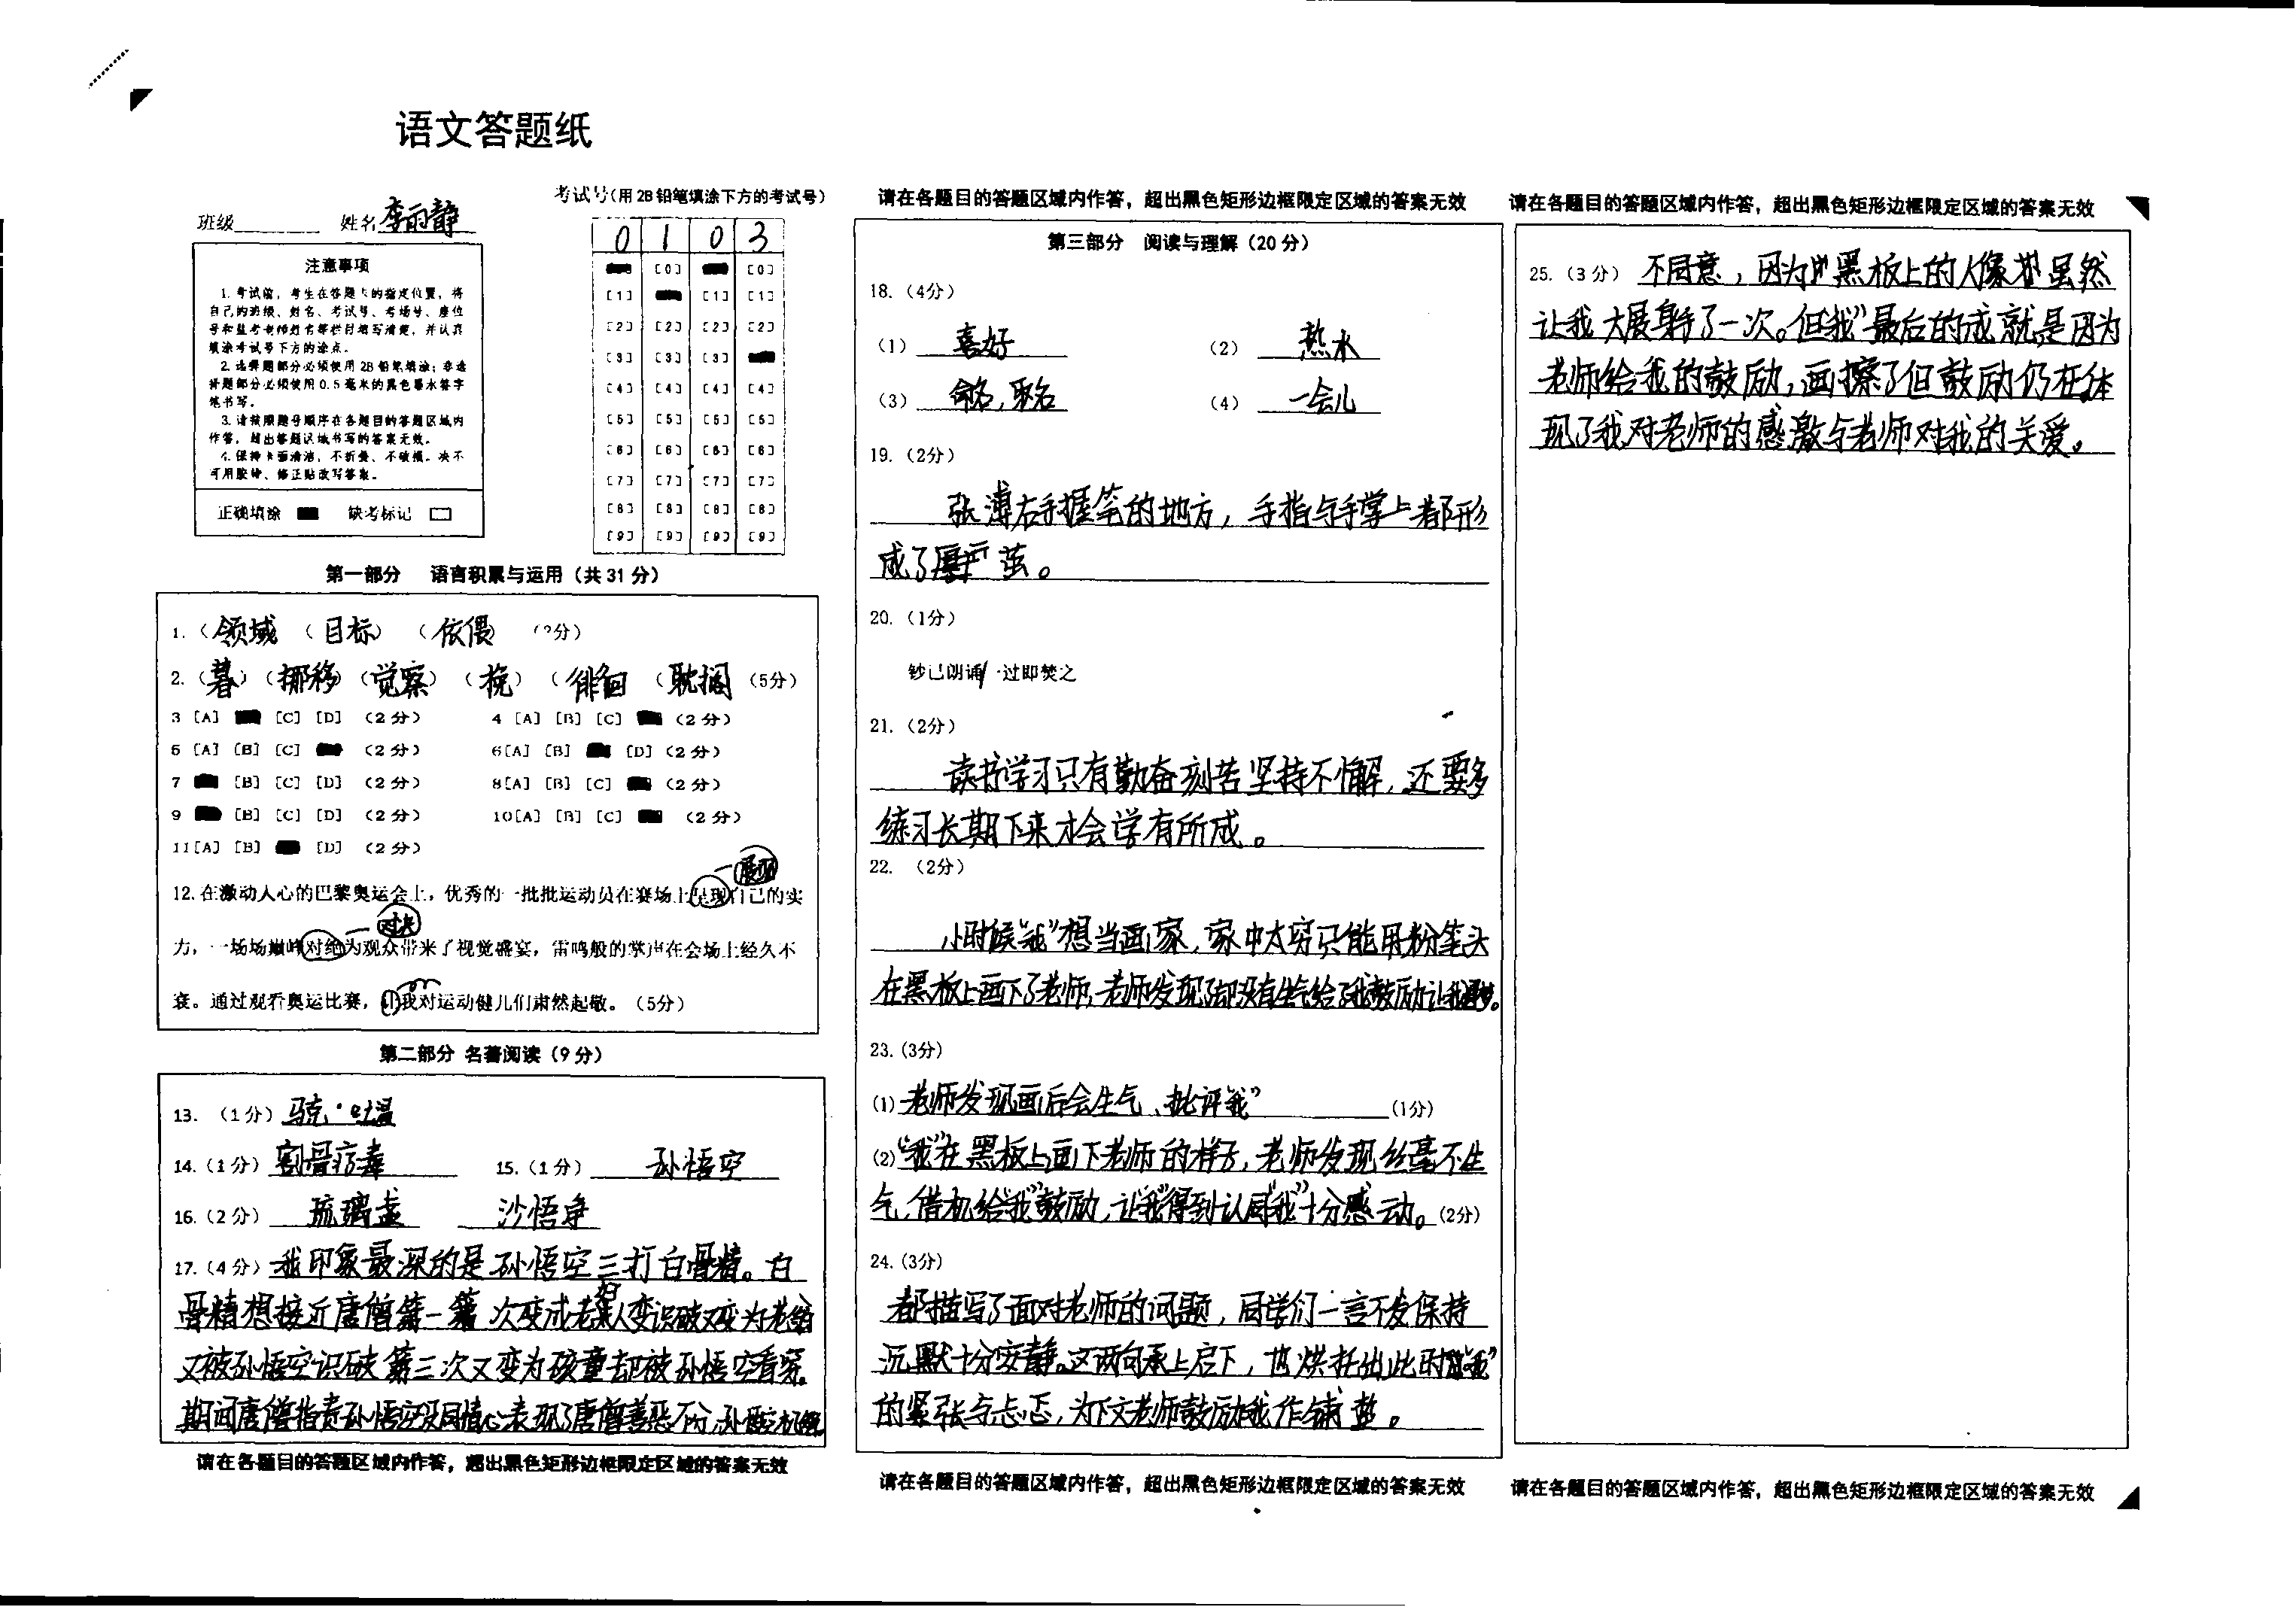 语文答题纸
班级 姓名 李雨静
考试号(用 2B 铅笔填涂下方的考试号)
0 1 0 3
[0] [0]
[1] [1] [1]
[2] [2] [2] [2]
[3] [3] [3]
[4] [4] [4] [4]
[5] [5] [5] [5]
[6] [6] [6] [6]
[7] [7] [7] [7]
[8] [8] [8] [8]
[9] [9] [9] [9]
注意事项
1. 考试前，考生在答题卡的指定位置，将
自己的班级、姓名、考试号、考场号、座位
号和监考老师姓名等栏目填写清楚，并认真
填涂考试号下方的涂点。
2. 选择题部分必须使用 2B 铅笔填涂；非选
择题部分必须使用 0.5 毫米的黑色墨水签字
笔书写。
3. 请按照题号顺序在各题目的答题区域内
作答，超出答题区域书写的答案无效。
4. 保持卡面清洁，不折叠、不破损。决不
可用胶带、修正贴改写答案。
正确填涂 缺考标记
第一部分 语言积累与运用（共 31 分）
1.（领域）（目标）（依偎）（2分）
2.（暮）（挪移）（觉察）（挽）（徘徊）（耽搁）（5分）
3 [A] [C] [D] （2 分） 4 [A] [B] [C] （2 分）
5 [A] [B] [C] （2 分） 6[A] [B] [D]（2 分）
7 [B] [C] [D] （2 分） 8[A] [B] [C] （2 分）
9 [B] [C] [D] （2 分） 10[A] [B] [C] （2 分）
11[A] [B] [D] （2 分）
展现
12. 在激动人心的巴黎奥运会上，优秀的一批批运动员在赛场上呈现自己的实
对决
力，一场场巅峰对绝为观众带来了视觉盛宴，雷鸣般的掌声在会场上经久不
衰。通过观看奥运比赛，让我对运动健儿们肃然起敬。（5分）
第二部分 名著阅读（9 分）
13. （1 分）骆·吐温
14.（1 分）割骨疗毒 15.（1 分）孙悟空
16.（2 分）琉璃盏 沙悟净
17.（4 分）我印象最深的是孙悟空三打白骨精。白
骨精想接近唐僧第一次变成老人变识破又变为老翁
又被孙悟空识破第三次又变为孩童却被孙悟空看穿。
期间唐僧指责孙悟空没同情心表现了唐僧善恶不分,孙悟空机
请在各题目的答题区域内作答，超出黑色矩形边框限定区域的答案无效
请在各题目的答题区域内作答，超出黑色矩形边框限定区域的答案无效
第三部分 阅读与理解（20 分）
18.（4分）
（1）喜好 （2）热水
（3）命名,取名 （4）一会儿
19.（2分）
张溥右手握笔的地方，手指与手掌上都形
成了厚茧。
20.（1分）
钞已朗诵/一过即焚之
21.（2分）
读书学习只有勤奋刻苦坚持不懈,还要多
练习长期下来才会学有所成。
22. （2分）
小时候“我”想当画家,家中太穷只能用粉笔头
在黑板上画下了老师,老师发现了却没有生气给了我鼓励让我
23.（3分）
(1) 老师发现画后会生气、批评“我” （1分）
(2)“我”在黑板上画下老师的样子,老师发现丝毫不生
气,借机给“我”鼓励,让“我”得到认同“我”十分感动。（2分）
24.（3分）
都描写了面对老师的问题,同学们一言不发保持
沉默十分安静。这两句承上启下,也烘托出此时“我”
的紧张与忐忑,为下文老师鼓励我作铺垫。
请在各题目的答题区域内作答，超出黑色矩形边框限定区域的答案无效
请在各题目的答题区域内作答，超出黑色矩形边框限定区域的答案无效
25.（3 分）不同意,因为黑板上的人像虽然
让我大展身手了一次。但“我”最后的成就是因为
老师给我的鼓励,画擦了但鼓励仍在体
现了我对老师的感激与老师对我的关爱。
请在各题目的答题区域内作答，超出黑色矩形边框限定区域的答案无效